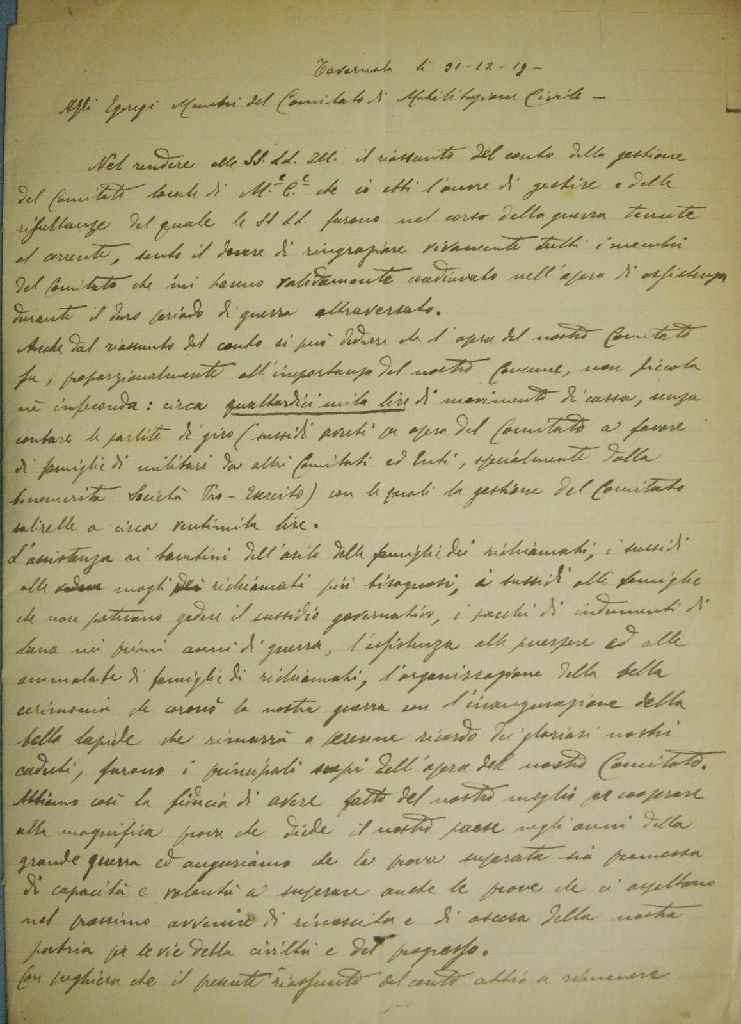 Tavernola li 31-12-19-
Agli Egregi Membri del Comitato di Mobilitazione Civile -
Nel rendere alle SS. LL. Ill. il riassunto del conto della gestione
del Comitato locale di M.e C.e che io ebbi l'onore di gestire e delle
risultanze del quale le SS LL. furono nel corso della guerra tenute
al corrente, sento il dovere di ringraziare vivamente tutti i membri
del Comitato che mi hanno validamente coadiuvato nell'opera di assistenza
durante il duro periodo di guerra attraversato.
Anche dal riassunto del conto si può dedurre che l'opera del nostro Comitato
fu, proporzionalmente all'importanza del nostro Comune, non piccola
nè infeconda: circa quattordici mila lire di movimento di cassa, senza
contare le partite di giro (sussidi avuti per opera del Comitato a favore
di famiglie di militari da altri Comitati ed Enti, specialmente dalla
benemerita Società Pro-Esercito) con le quali la gestione del Comitato
salirebbe a circa ventimila lire.
L'assistenza ai bambini dell'asilo delle famiglie dei richiamati, i sussidi
alle mogli dei richiamati più bisognosi, i sussidi alle famiglie
che non potevano godere il sussidio governativo, i pacchi di indumenti di
lana nei primi anni di guerra, l'assistenza alle puerpere ed alle
ammalate di famiglie di richiamati, l'organizzazione della bella
cerimonia che coronò la nostra guerra con l'inaugurazione della
bella lapide che rimarrà a perenne ricordo dei gloriosi nostri
caduti, furono i principali scopi dell'opera del nostro Comitato.
Abbiamo così la fiducia di avere fatto del nostro meglio per cooperare
alla magnifica prova che diede il nostro paese negli anni della
grande guerra ed auguriamo che la prova superata sia promessa
di capacità e volontà a superare anche le prove che ci aspettano
nel prossimo avvenire di rinascita e di ascesa della nostra
patria per le vie della civiltà e del progresso.
Con preghiera che il presente riassunto del conto abbia a rimanere